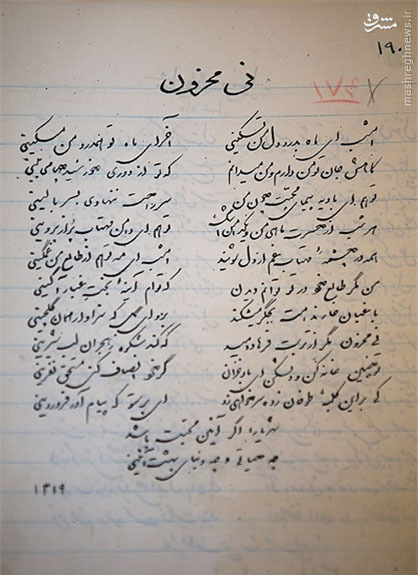 ۱۹۰
نی محزون
امشب ای ماه بدرد دل من تسکینی آخر ای ماه تو همدرد من مسکینی
کاهش جان تو من دارم و من میدانم که تو از دوری خورشید چها می بینی
تو هم ای بادیه پیمای محبت چون من سر راحت ننهادی بسر بالینی
هر شب از حسرت ماهی من و یکدامن اشک تو هم ای دامن مهتاب پر از پروینی
همه در چشمهٔ مهتاب غم از دل شویند امشب ای مه تو هم از طالع من غمگینی
من مگر طالع خود در تو توانم دیدن که توام آینهٔ بخت غبار آگینی
باغبان خار ندامت بجگر میشکند برو ای گل که سزاوار همان گلچینی
نی محزون مگر از تربت فرهاد دمید که کند شکوه ز هجران لب شیرینی
تو چنین خانه کن و دلشکن ای باد خزان گر خود انصاف کنی مستحق نفرینی
کی بر این کلبهٔ طوفان زده سر خواهی زد ای پرستو که پیام آور فروردینی
شهریارا اگر آئین محبت باشد
چه حیاتی و چه دنیای بهشت آئینی
۱۳۱۹
مشرق
mashreghnews.ir